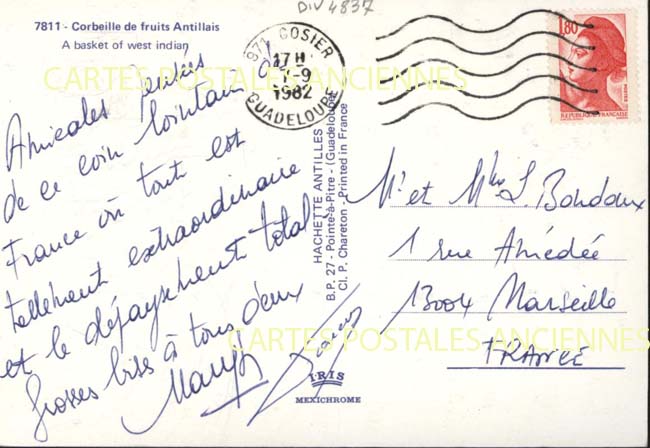 DIV 4837
7811 - Corbeille de fruits Antillais
A basket of west indian
CARTES POSTALES ANCIENNES
971 GOSIER
17 H
1-9
1982
GUADELOUPE
1,80
POSTES
REPUBLIQUE FRANCAISE
Amicales pensées
de ce coin lointain de
France où tout est
tellement extraordinaire
et le dépaysement total
Grosses bises à tous deux
HACHETTE ANTILLES
B.P. 27 - Pointe-à-Pitre - (Guadeloupe)
Cl. P. Chareton - Printed in France
Mr et Mme L. Bordoux
1 rue Amédée
13004 Marseille
FRANCE
CARTES POSTALES ANCIENNES
IRIS
MEXICHROME